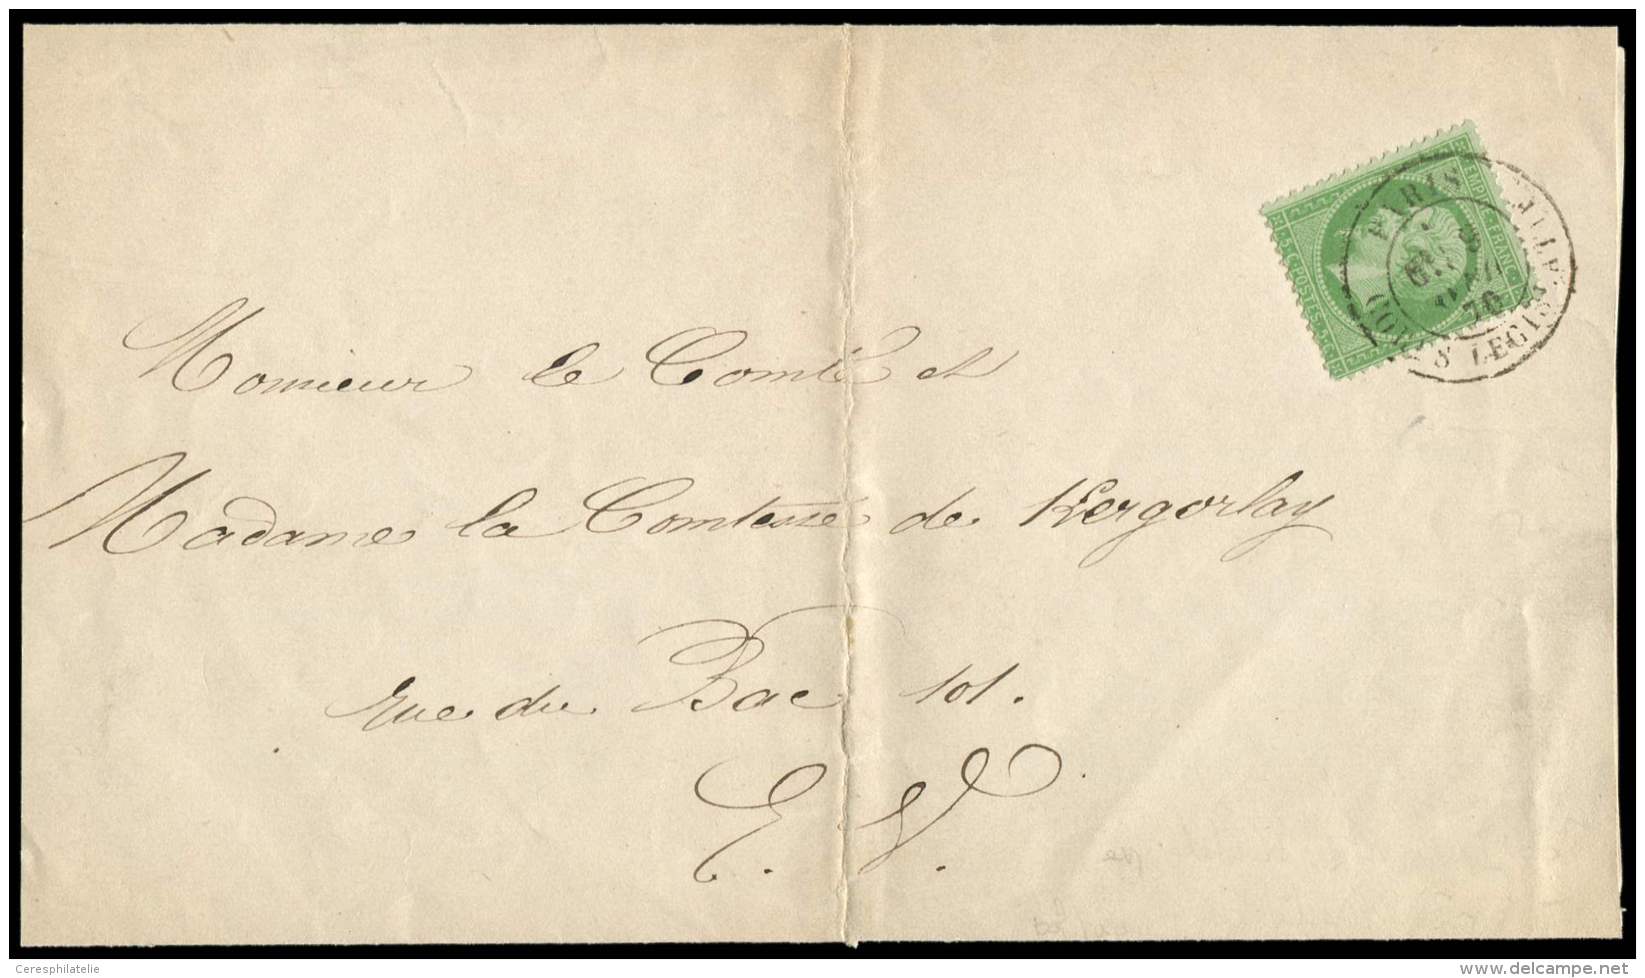 EMPIRE FRANC.
5 C. POSTES 5 C.
PARIS
CORPS LEGISLATIF
70
Monsieur le Comte et
Madame la Comtesse de Kergorlay
rue du Bac 101.
E. V.
Ceresphilatelie
delcampe.net